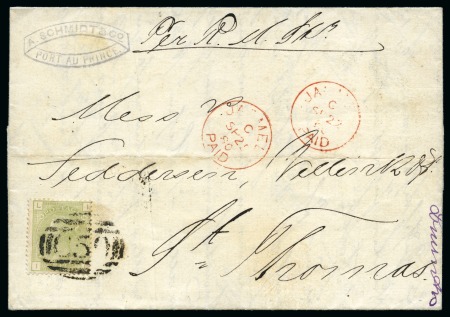 A. SCHMIDT & CO.
PORT AU PRINCE
Per R. M. Sttr
JACMEL
G
SP 2
80
PAID
JA
G
SP 22
PAID
Mess
Feddersen, Willink &
St Thomas.
L
C59